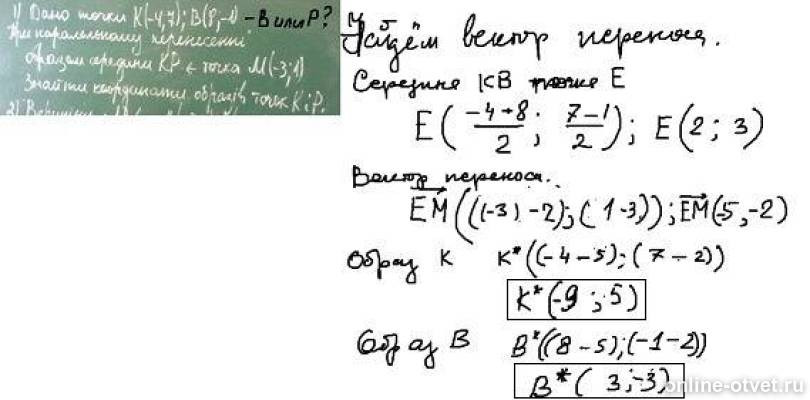 1) Дано точки К(-4,7); В(8,-1) - В или Р?
При паралельному перенесенні
образом середини КР є точка М(-3;1)
Знайти координати образів точок К і Р.
Найдём вектор переноса.
Середина КВ точка Е
E( -4+8/2 ; 7-1/2 ); E(2; 3)
Вектор переноса.
EM((-3)-2);(1-3)); EM(-5,-2)
Образ К K*((-4-5);(7-2))
K*(-9 ;5)
Образ В B*((8-5);(-1-2))
B*( 3;-3)
online-otvet.ru